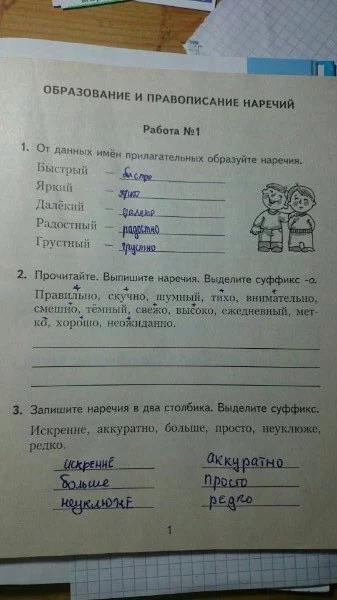 ОБРАЗОВАНИЕ И ПРАВОПИСАНИЕ НАРЕЧИЙ
Работа №1
1. От данных имён прилагательных образуйте наречия.
Быстрый – быстро
Яркий – ярко
Далёкий – далеко
Радостный – радостно
Грустный – грустно
2. Прочитайте. Выпишите наречия. Выделите суффикс -о.
Правильно, скучно, шумный, тихо, внимательно,
смешно, тёмный, свежо, высоко, ежедневный, мет-
ко, хорошо, неожиданно.
3. Запишите наречия в два столбика. Выделите суффикс.
Искренне, аккуратно, больше, просто, неуклюже,
редко.
искренне аккуратно
больше просто
неуклюже редко
1